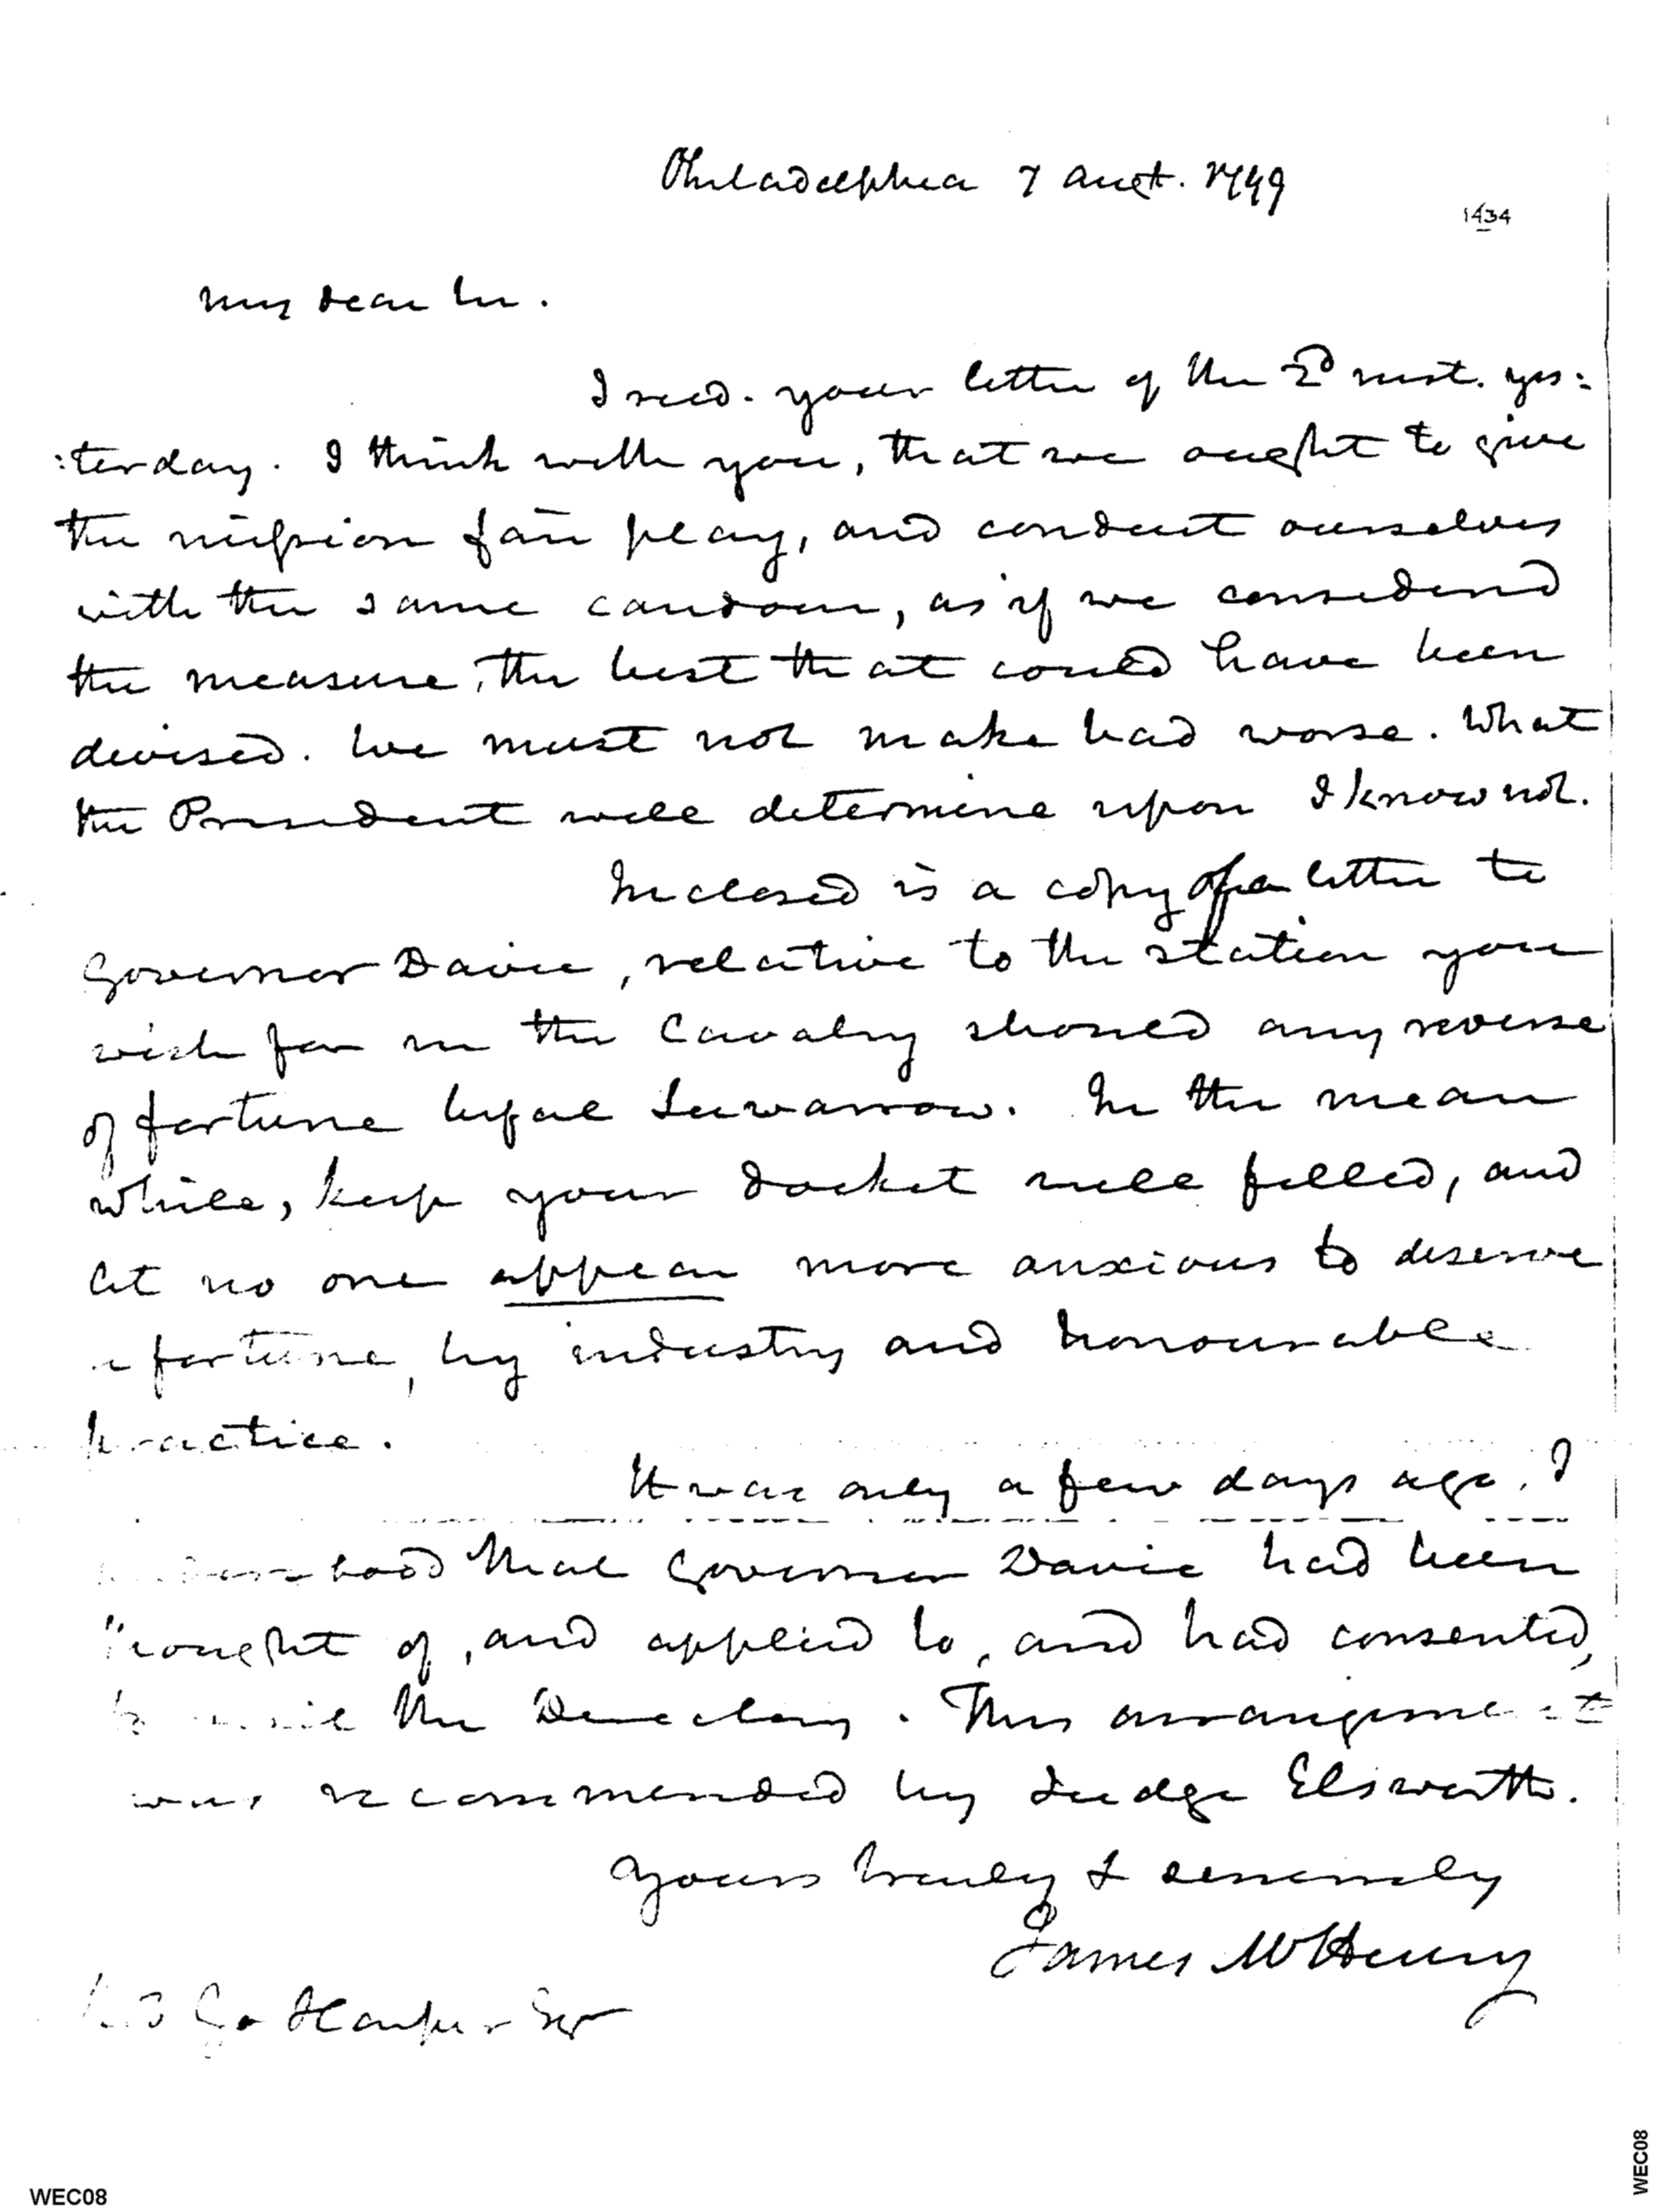 Philadelphia 7 Augt. 1799
1434
My dear Sir.
I recd. your letter of the 2d inst. yes:
:terday. I think with you, that we ought to give
the mission fair play, and conduct ourselves
with the same candour, as if we considered
the measure, the best that could have been
devised. We must not make bad worse. What
the President will determine upon I know not.
Inclosed is a copy of a letter to
Governor Davie, relative to the station you
wish for in the Cavalry should any reverse
of fortune befal Suwarrow. In the mean
while, keep your docket well filled, and
let no one appear more anxious to deserve
a fortune, by industry and honourable
practice.
It was only a few days ago, I
understood that Governor Davie had been
thought of, and applied to, and had consented,
to the Directory. This arrangement
was recommended by Judge Elsworth.
Yours truly & sincerely
James McHenry
Harper Esqr
WEC08
WEC08